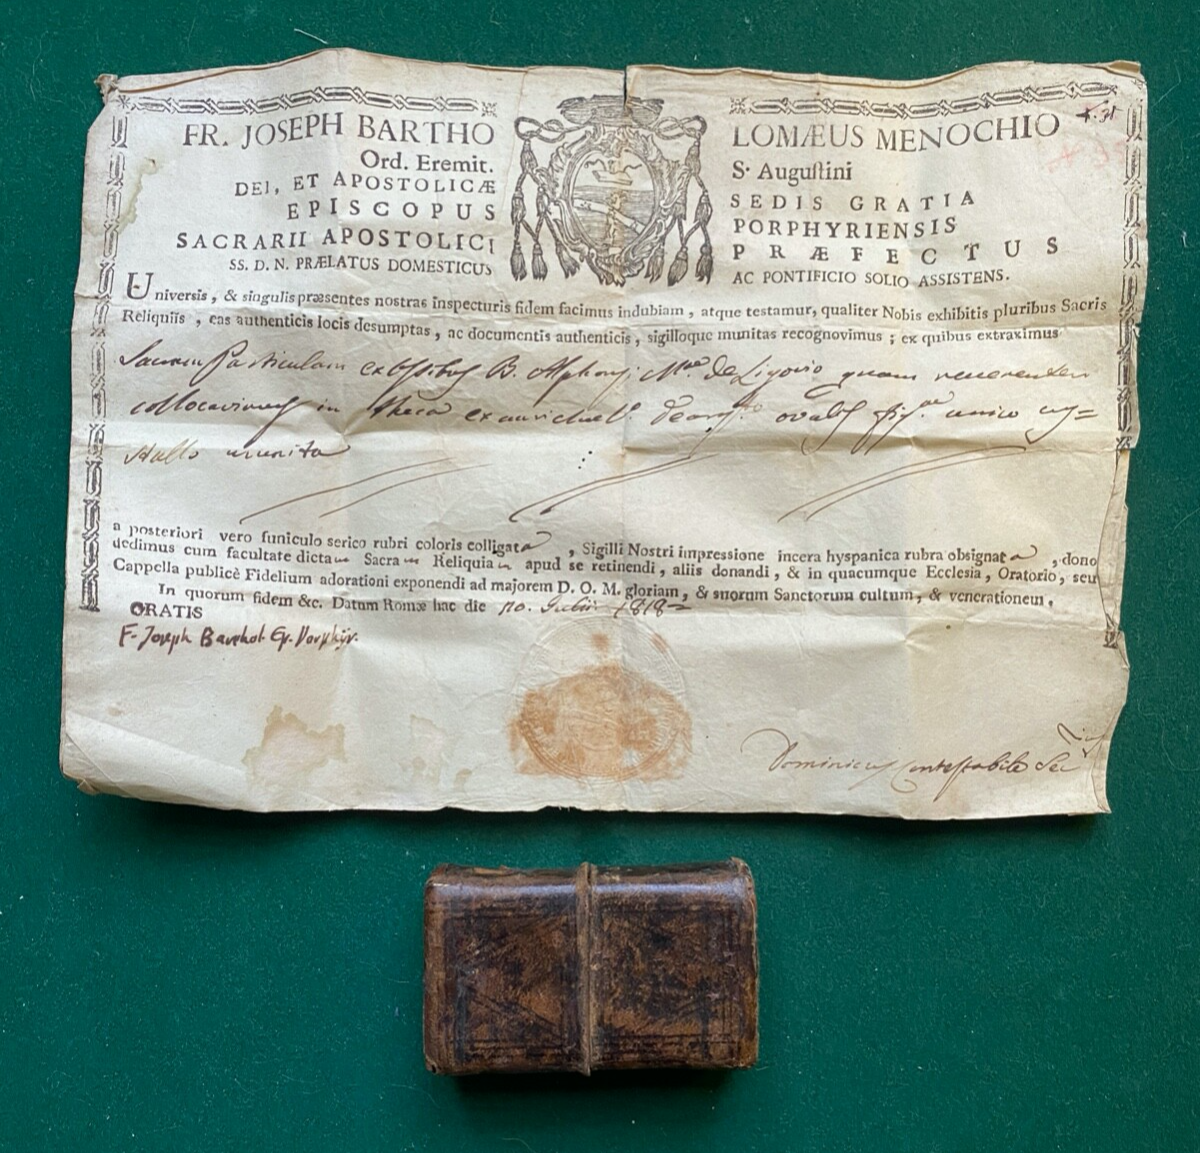 FR. JOSEPH BARTHO LOMÆUS MENOCHIO
Ord. Eremit. S. Auguſtini
DEI, ET APOSTOLICÆ SEDIS GRATIA
EPISCOPUS PORPHYRIENSIS
SACRARII APOSTOLICI PRÆFECTUS
SS. D. N. PRÆLATUS DOMESTICUS AC PONTIFICIO SOLIO ASSISTENS.
Universis, & singulis præsentes nostras inspecturis fidem facimus indubiam, atque testamur, qualiter Nobis exhibitis pluribus Sacris
Reliquiis, eas authenticis locis desumptas, ac documentis authenticis, sigilloque munitas recognovimus; ex quibus extraximus
Sacram Particulam ex Ossibus B. Alphonsi Mae de Ligorio quam reverenter
collocavimus in theca ex aurichal. ovalis fig. unico cry=
stallo munita
a posteriori vero funiculo serico rubri coloris colligata, Sigilli Nostri impressione incera hyspanica rubra obsignata, dono
dedimus cum facultate dictam Sacram Reliquiam apud se retinendi, aliis donandi, & in quacumque Ecclesia, Oratorio, seu
Cappella publicè Fidelium adorationi exponendi ad majorem D. O. M. gloriam, & suorum Sanctorum cultum, & venerationem.
In quorum fidem &c. Datum Romæ hac die 10. Julii 1818
GRATIS
F. Joseph Barthol. Ep. Porphyr.
Dominicus Contestabile Sec